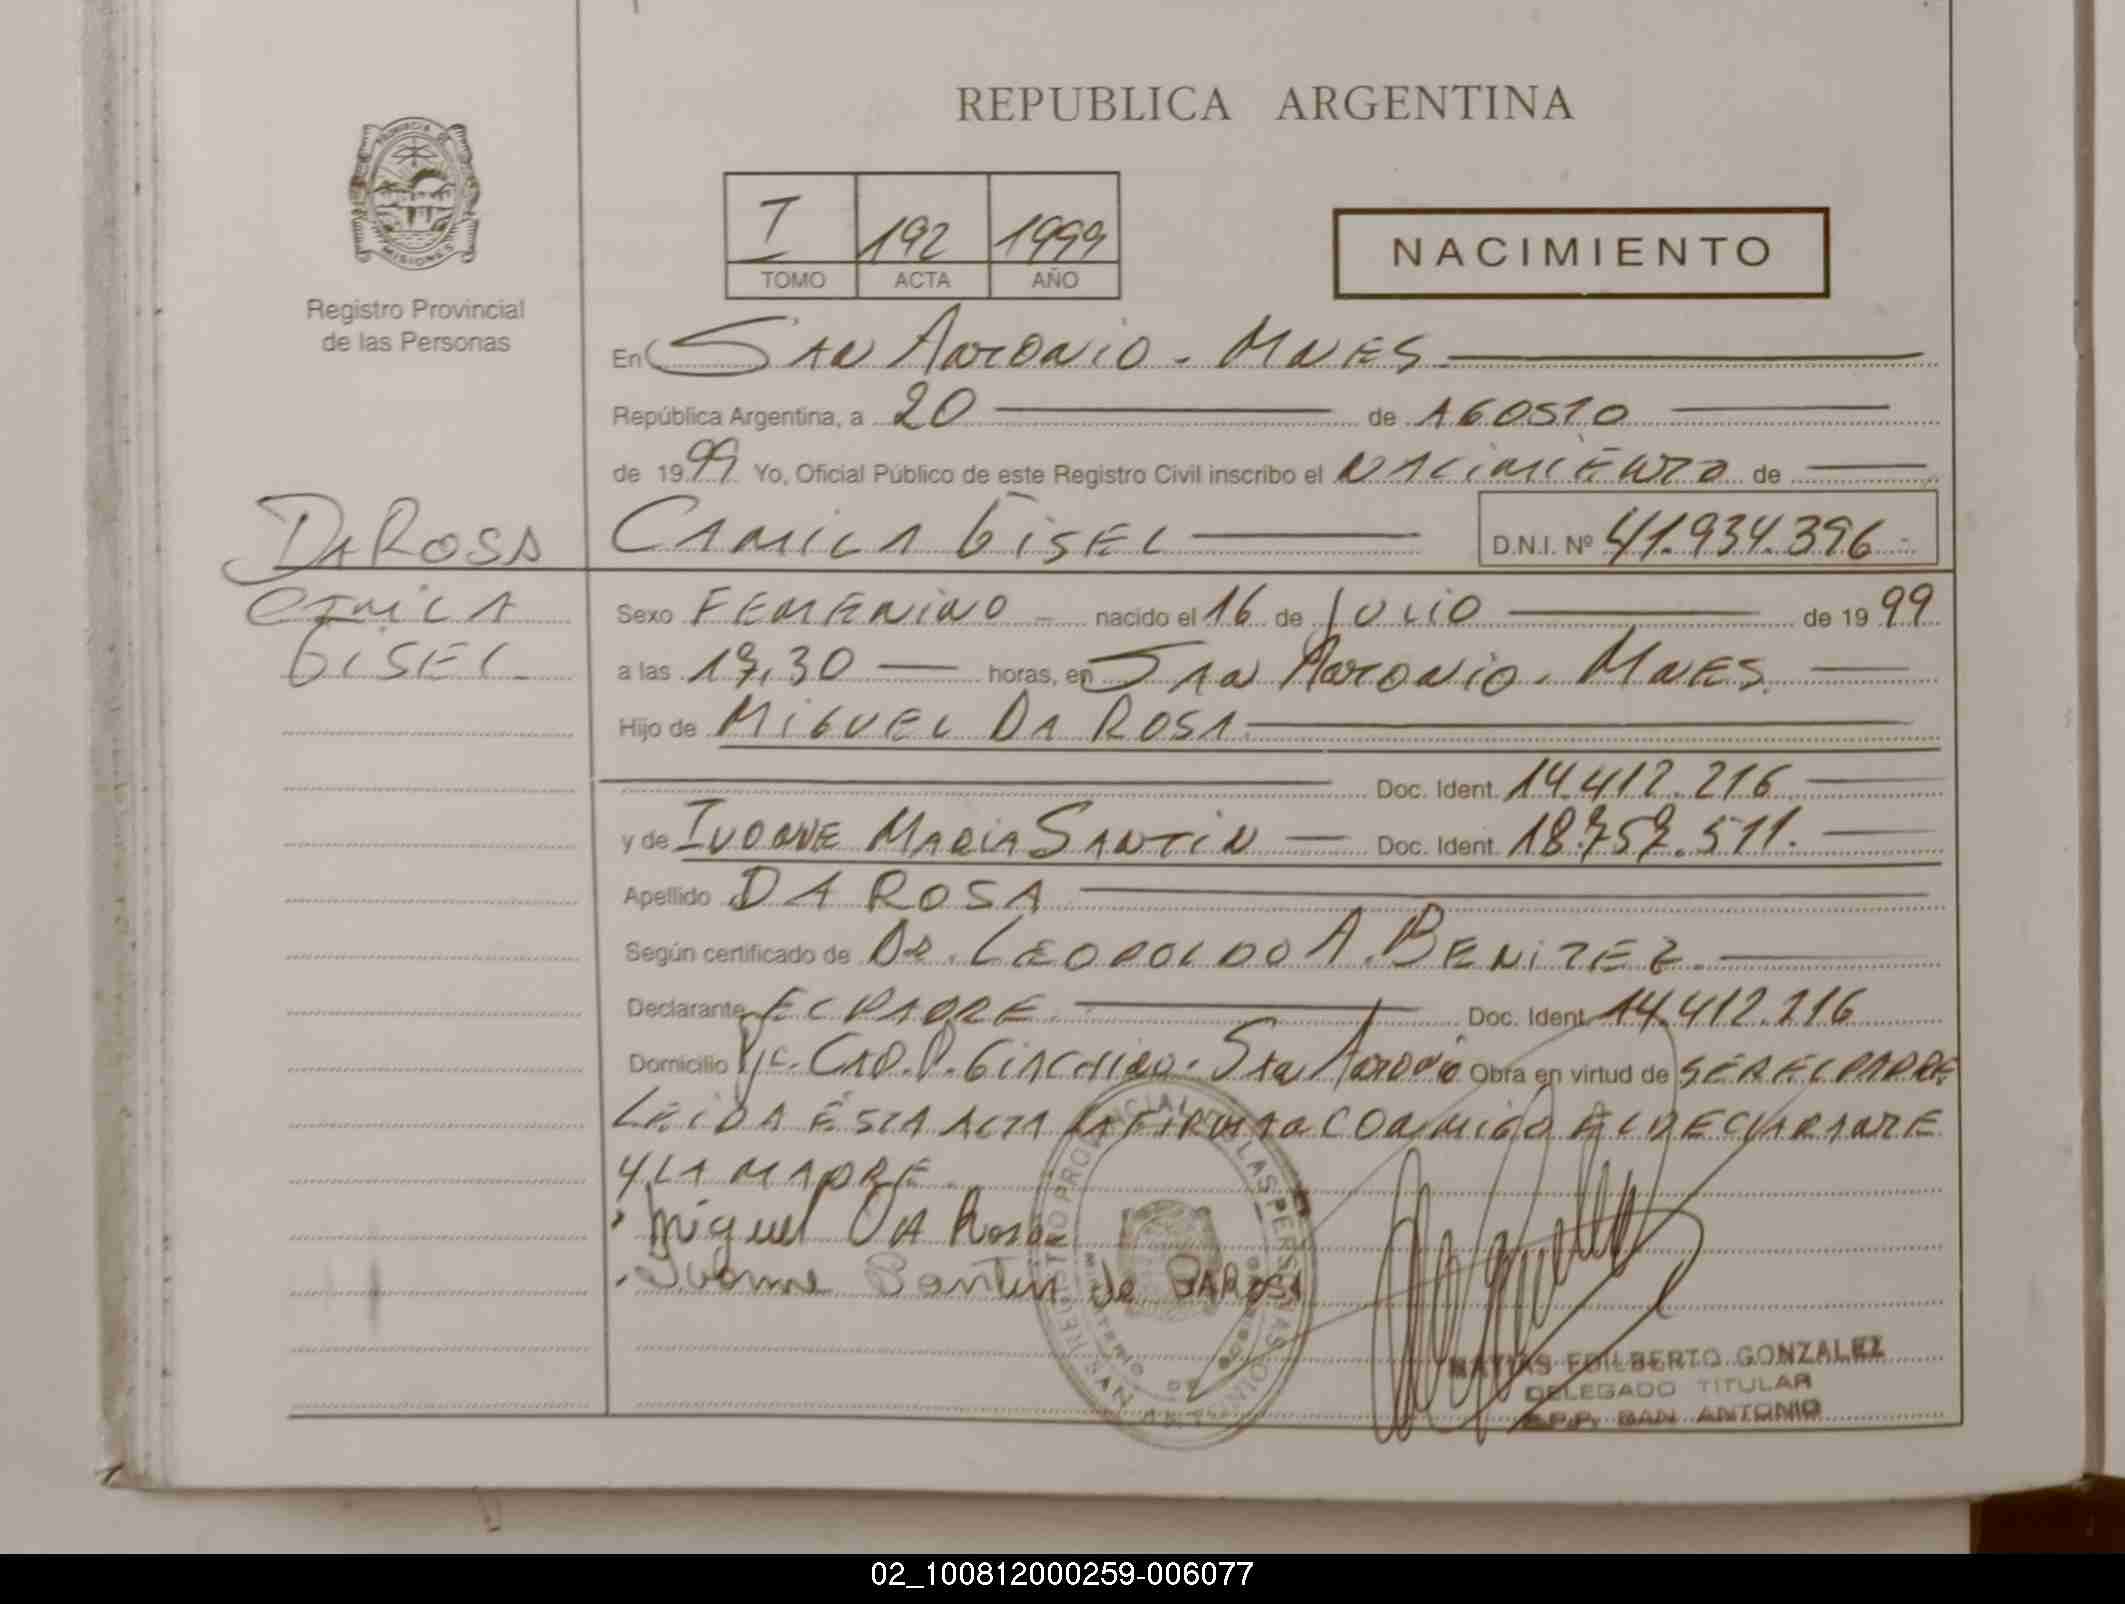 REPUBLICA ARGENTINA
PROVINCIA DE
MISIONES
Registro Provincial
de las Personas
I 192 1999
TOMO ACTA AÑO
NACIMIENTO
En SAN ANTONIO - MNES
República Argentina, a 20 de AGOSTO
de 1999 Yo, Oficial Público de este Registro Civil inscribo el NACIMIENTO de
DA ROSA
CAMILA
GISEL
CAMILA GISEL D.N.I. Nº 41.934.396
Sexo FEMENINO nacido el 16 de JULIO de 1999
a las 17,30 horas, en SAN ANTONIO - MNES
Hijo de MIGUEL DA ROSA
Doc. Ident. 14.412.216
y de IVONNE MARIA SANTIN Doc. Ident. 18.757.511.
Apellido DA ROSA
Según certificado de DR. LEOPOLDO A. BENITEZ
Declarante EL PADRE Doc. Ident. 14.412.216
Domicilio SAN ANTONIO Obra en virtud de SER EL PADRE
LEIDA ESTA ACTA LA FIRMAN CONMIGO EL DECLARANTE
Y LA MADRE
Miguel DA Rosa
Ivonne Santin de DAROSA
REGISTRO PROVINCIAL DE LAS PERSONAS
MINISTERIO DE GOBIERNO
SAN ANTONIO
MATIAS EDILBERTO GONZALEZ
DELEGADO TITULAR
SAN ANTONIO
02_100812000259-006077